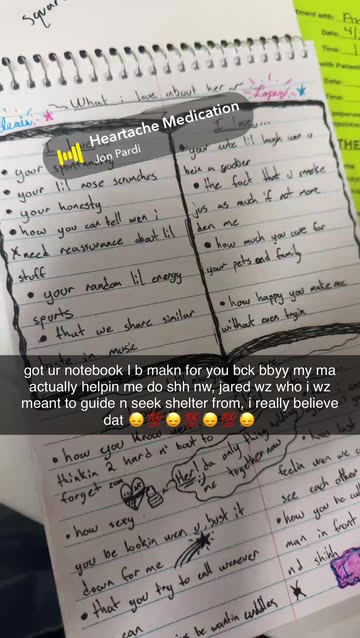 squar
What i love about her
Lopez
I love...
Heartache Medication
Jon Pardi
• your
• your lil nose scrunches
• your honesty
• how you can tell wen i
need reassurance about lil
stuff
• your random lil energy
spurts
• that we share similar
taste in music
• your cute lil laugh wen u
bein a goober
• the fact that u smoke
jus as much if not more
den me
• how much you care for
your pets and family
• how happy you make me
without even tryin
got ur notebook I b makn for you bck bbyy my ma
actually helpin me do shh nw, jared wz who i wz
meant to guide n seek shelter from, i really believe
dat 😔💯😔💯😔💯😔
• how you know
thinkin 2 hard n' bout to
forget sum
Her! da only thing
me together now
• how sexy
you be lookin wen u just it
down for me
• that you try to call wenever
can
wantin cuddles
feelin wen we
see each other
• how you be
man in front
nd shihh
tment with: A
Date: 4/2
Time: 1
with Patient
Date:
Time:
THE